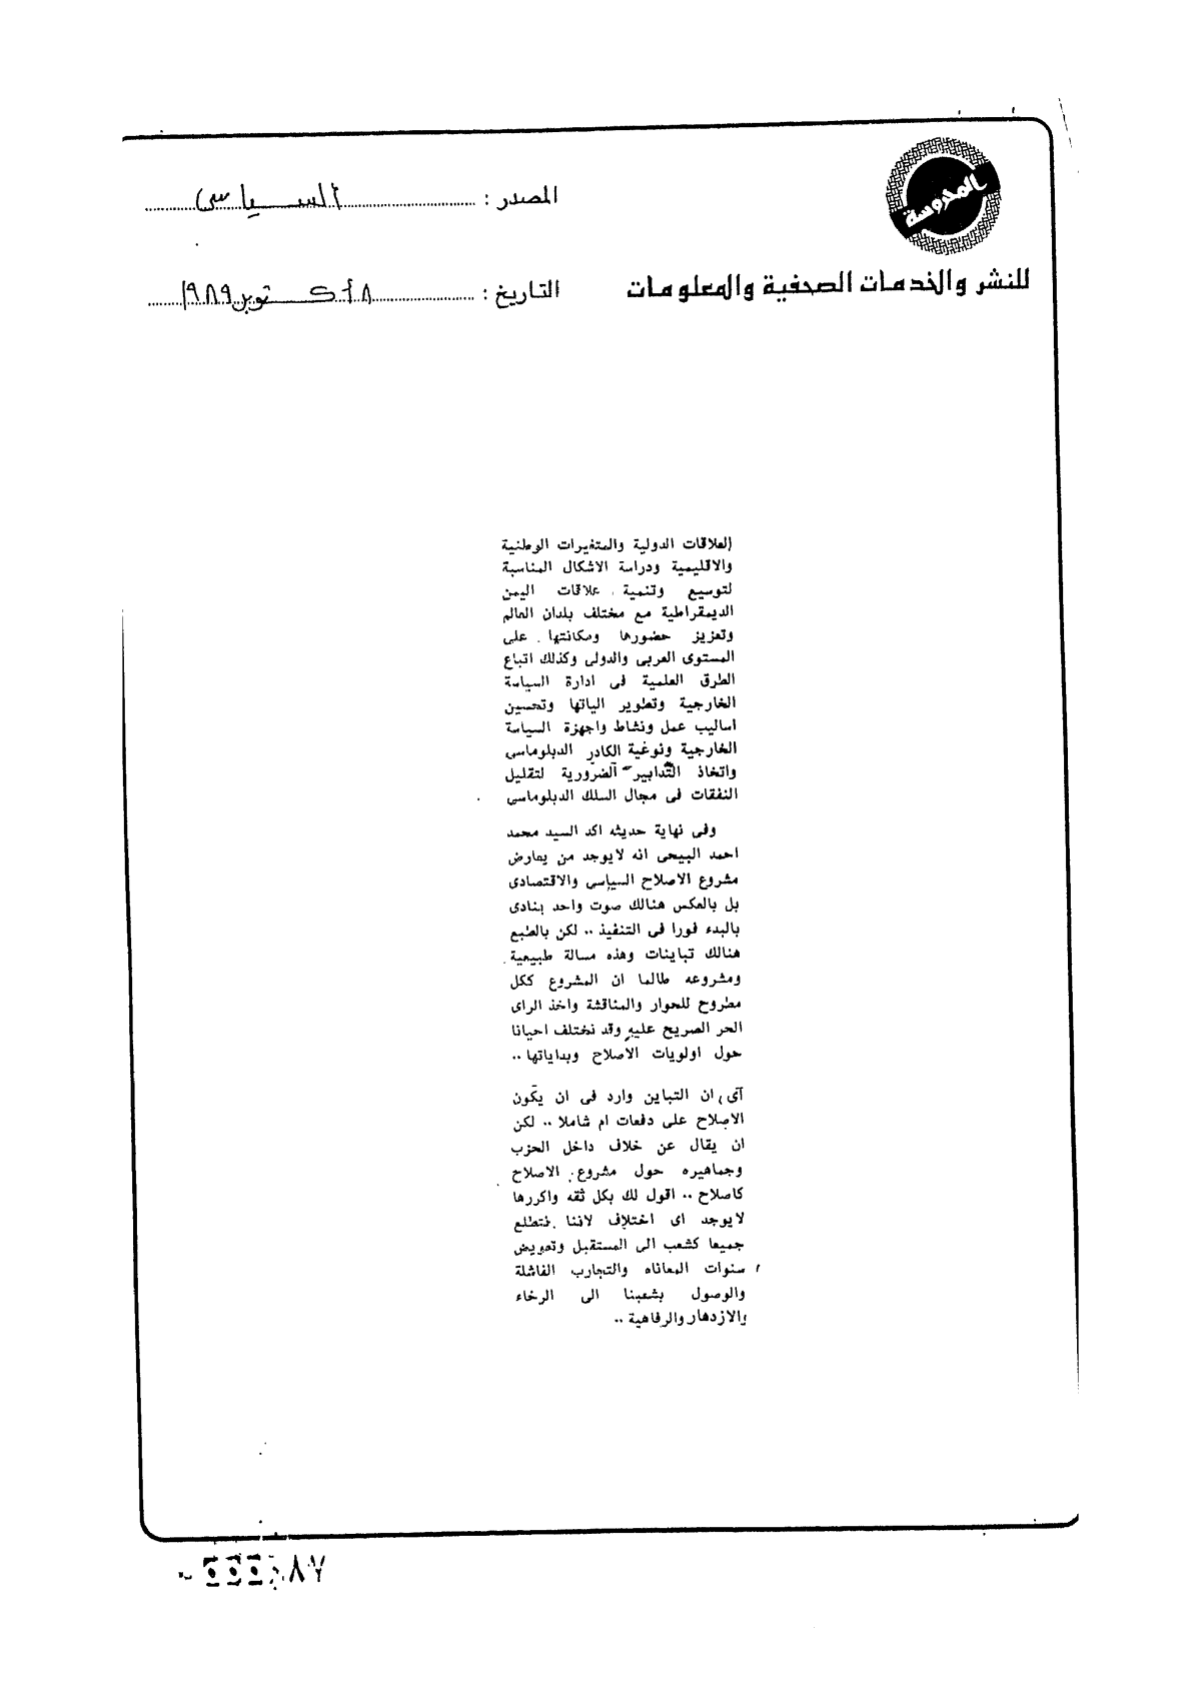 المحروسة
للنشر والخدمات الصحفية والمعلومات
المصدر : السياسى
التاريخ : ٨ أكتوبر ١٩٨٩
العلاقات الدولية والمتغيرات الوطنية
والاقليمية ودراسة الاشكال المناسبة
لتوسيع وتنمية علاقات اليمن
الديمقراطية مع مختلف بلدان العالم
وتعزيز حضورها ومكانتها على
المستوى العربى والدولى وكذلك اتباع
الطرق العلمية فى ادارة السياسة
الخارجية وتطوير الياتها وتحسين
اساليب عمل ونشاط واجهزة السياسة
الخارجية ونوعية الكادر الدبلوماسى
واتخاذ التدابير الضرورية لتقليل
النفقات فى مجال السلك الدبلوماسى
وفى نهاية حديثه اكد السيد محمد
احمد البيحى انه لايوجد من يعارض
مشروع الاصلاح السياسى والاقتصادى
بل بالعكس هنالك صوت واحد ينادى
بالبدء فورا فى التنفيذ .. لكن بالطبع
هنالك تباينات وهذه مسالة طبيعية
ومشروعه طالما ان المشروع ككل
مطروح للحوار والمناقشة واخذ الراى
الحر الصريح عليه وقد نختلف احيانا
حول اولويات الاصلاح وبداياتها ..
أى ان التباين وارد فى ان يكون
الاصلاح على دفعات ام شاملا .. لكن
ان يقال عن خلاف داخل الحزب
وجماهيره حول مشروع الاصلاح
كاصلاح .. اقول لك بكل ثقه واكررها
لايوجد اى اختلاف لاننا نتطلع
جميعا كشعب الى المستقبل وتعويض
سنوات المعاناه والتجارب الفاشلة
والوصول بشعبنا الى الرخاء
والازدهار والرفاهية ..
٨٧